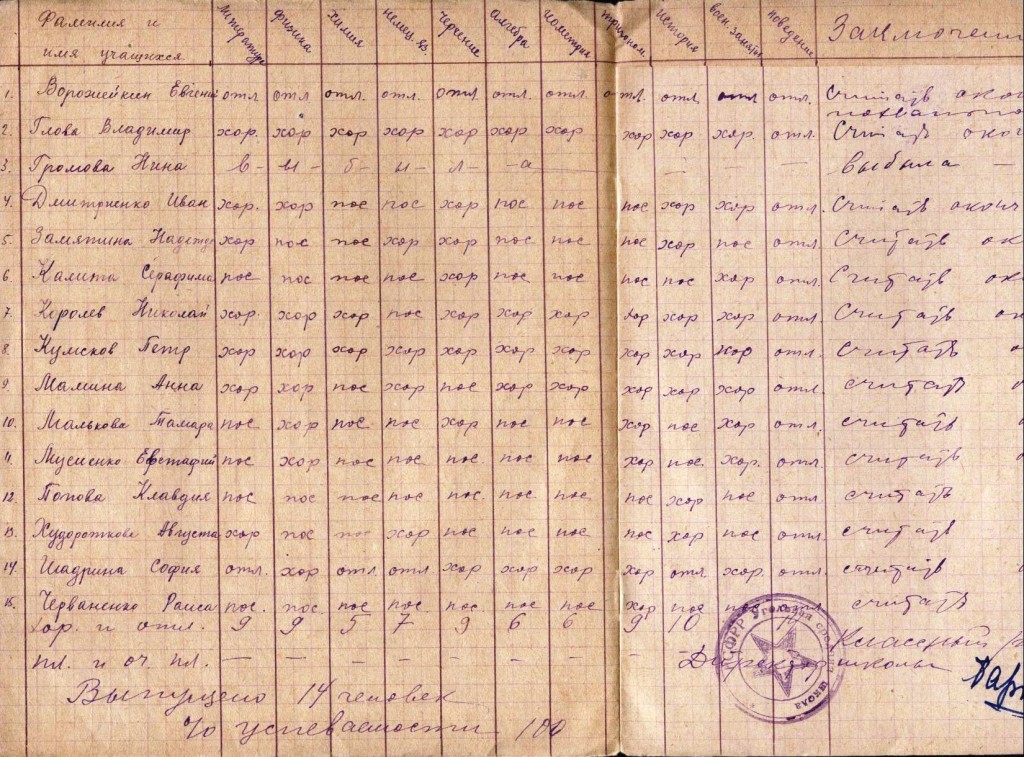 Фамилия и имя учащихся литература физика химия немец. яз. черчение алгебра геометрия тригоном. история воен. занят. поведение Заключени
1. Ворожейкин Евгений отл отл отл. отл. отл отл. отл. отл. отл. отл отл. Считать окон
2. Глова Владимир хор. хор хор хор хор хор хор хор хор хор отл. Считать окон
3. Громова Нина в- ы- б- ы- л- -а — — выбыла —
4. Дмитриенко Иван хор. хор пос пос хор пос пос пос хор хор отл. Считать оконч
5. Замятина хор пос пос хор хор пос пос пос хор пос отл Считать ок
6. Калита Серафима пос пос пос пос хор пос пос пос пос хор отл Считать ок
7. Королев Николай хор хор хор пос хор хор хор хор хор хор отл. Считать ок
8. Кумсков Петр хор хор хор хор хор хор хор хор хор хор отл. Считать о
9. Мамина Анна хор хор пос хор пос хор хор хор хор хор отл. считать
10. Малькова Тамара пос хор пос пос хор пос пос хор пос хор отл считать
11. Евстафий пос хор пос пос пос пос пос хор пос. хор. отл считать
12. Попова Клавдия пос пос пос пос пос. пос пос пос хор пос отл. считать
13. Августа хор пос пос хор пос пос пос пос хор пос отл. считать
14. Шадрина София отл. хор отл отл хор хор хор хор отл. хор. отл. считать
15. Черваненко Раиса пос. пос. пос пос. пос пос пос хор пос считать
хор. и отл. 9 9 5 7 9 6 6 9 10 Классный
пл. и оч. пл. — — — — — — — — Директор школы
Выпущено 14 человек
% успеваемости 100